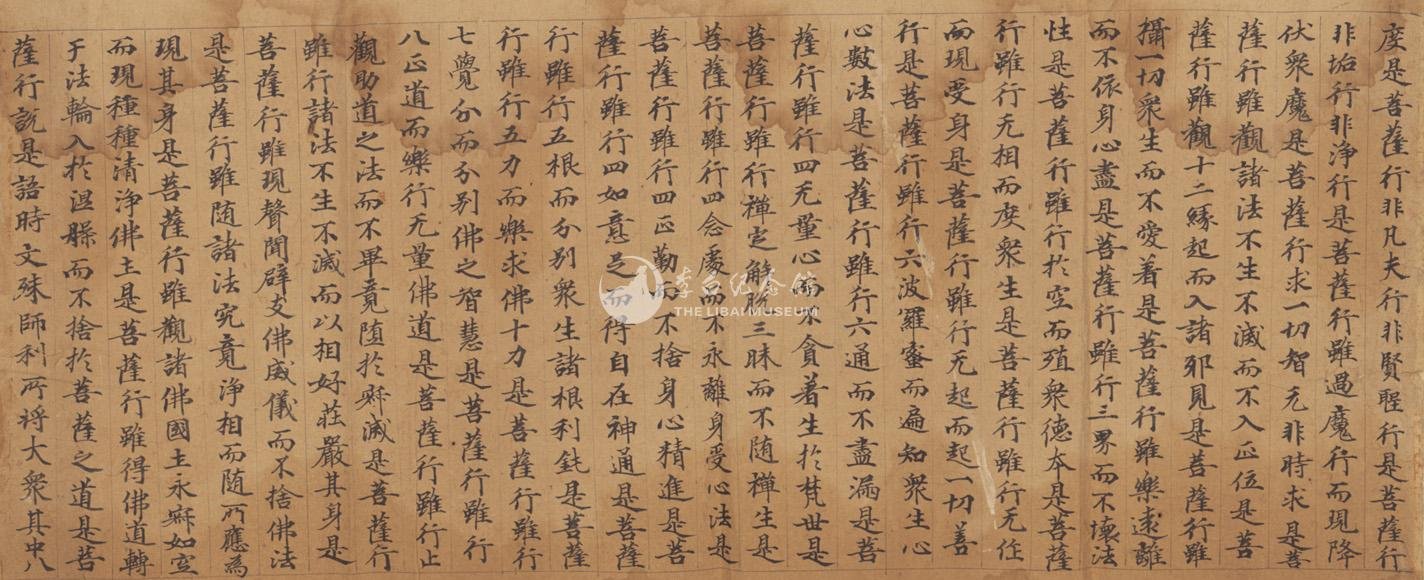 度是菩薩行非凡夫行非賢聖行是菩薩行
非垢行非淨行是菩薩行雖過魔行而現降
伏衆魔是菩薩行求一切智无非時求是菩
薩行雖觀諸法不生不滅而不入正位是菩
薩行雖觀十二緣起而入諸邪見是菩薩行雖
攝一切衆生而不愛著是菩薩行雖樂遠離
而不依身心盡是菩薩行雖行三界而不壞法
性是菩薩行雖行於空而殖衆德本是菩薩
行雖行无相而度衆生是菩薩行雖行无作
而現受身是菩薩行雖行无起而起一切善
行是菩薩行雖行六波羅蜜而遍知衆生心
心數法是菩薩行雖行六通而不盡漏是菩
薩行雖行四无量心而不貪著生於梵世是
菩薩行雖行禪定解脫三昧而不随禪生是
菩薩行雖行四念處而不永離身受心法是
菩薩行雖行四正勤而不捨身心精進是菩
薩行雖行四如意足而得自在神通是菩薩
行雖行五根而分別衆生諸根利鈍是菩薩
行雖行五力而樂求佛十力是菩薩行雖行
七覺分而分別佛之智慧是菩薩行雖行
八正道而樂行无量佛道是菩薩行雖行止
觀助道之法而不畢竟堕於寂滅是菩薩行
雖行諸法不生不滅而以相好莊嚴其身是
菩薩行雖現聲聞辟支佛威儀而不捨佛法
是菩薩行雖随諸法究竟淨相而随所應為
現其身是菩薩行雖觀諸佛國土永寂如空
而現種種清淨佛土是菩薩行雖得佛道轉
于法輪入於涅槃而不捨於菩薩之道是菩
薩行說是語時文殊師利所将大衆其中八
李白纪念馆
THE LIBAI MUSEUM